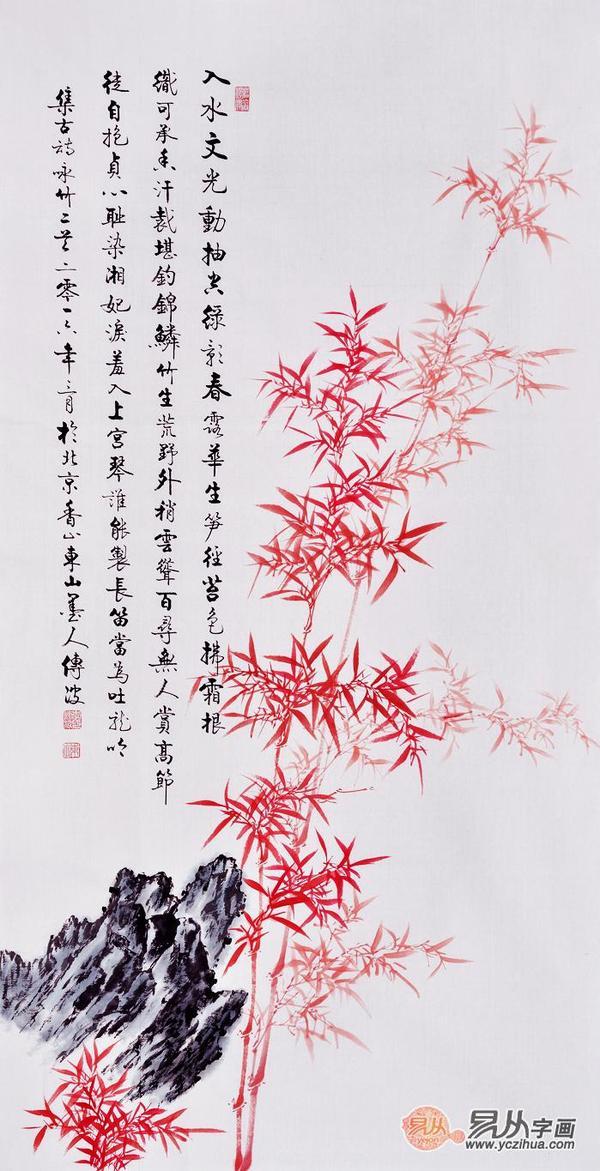 入水文光動抽空绿影春露華生笋徑苔色拂霜根
織可承香汗裁堪釣錦鱗竹生荒野外梢雲聳百尋無人賞高節
徒自抱貞心耻染湘妃淚羞入上宮琴誰能製長笛當為吐龍吟
集古詩咏竹二首二零一六年三月於北京香山東山墨人傳波
易从字画
www.yczihua.com